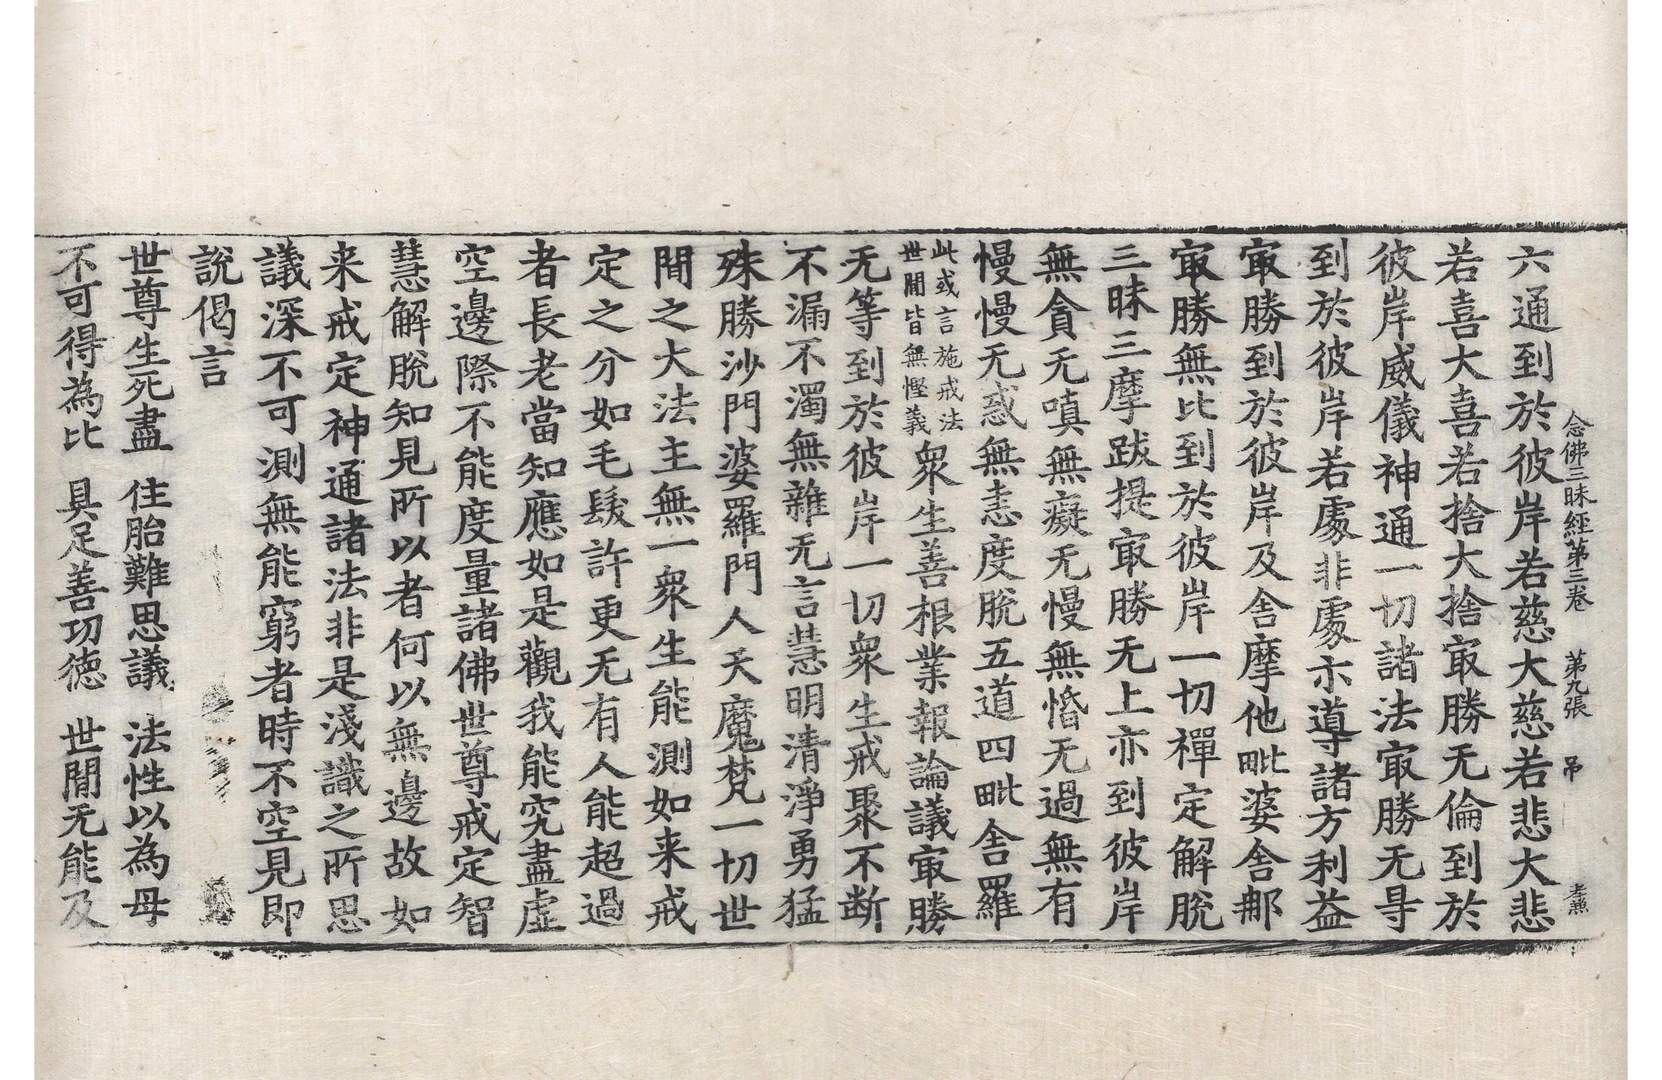 念佛三昧經第三卷　第九張　吊
六通到於彼岸若慈大慈若悲大悲
若喜大喜若捨大捨㝡勝无倫到於
彼岸威儀神通一切諸法㝡勝无㝵
到於彼岸若處非處示導諸方利益
㝡勝到於彼岸及舍摩他毗婆舍那
㝡勝無比到於彼岸一切禪定解脫
三昧三摩跋提㝡勝无上亦到彼岸
無貪无嗔無癡无慢無惛无過無有
慢慢无惑無恚度脫五道四毗舍羅
此或言施戒法
世間皆無慳義
衆生善根業報論議㝡勝
无等到於彼岸一切衆生戒聚不断
不漏不濁無雜无言慧明清淨勇猛
殊勝沙門婆羅門人天魔梵一切世
間之大法主無一衆生能測如来戒
定之分如毛髮許更无有人能超過
者長老當知應如是觀我能究盡虛
空邊際不能度量諸佛世尊戒定智
慧解脫知見所以者何以無邊故如
来戒定神通諸法非是淺識之所思
議深不可測無能窮者時不空見即
說偈言
世尊生死盡　住胎難思議　法性以為母
不可得為比　具足善功德　世間无能及